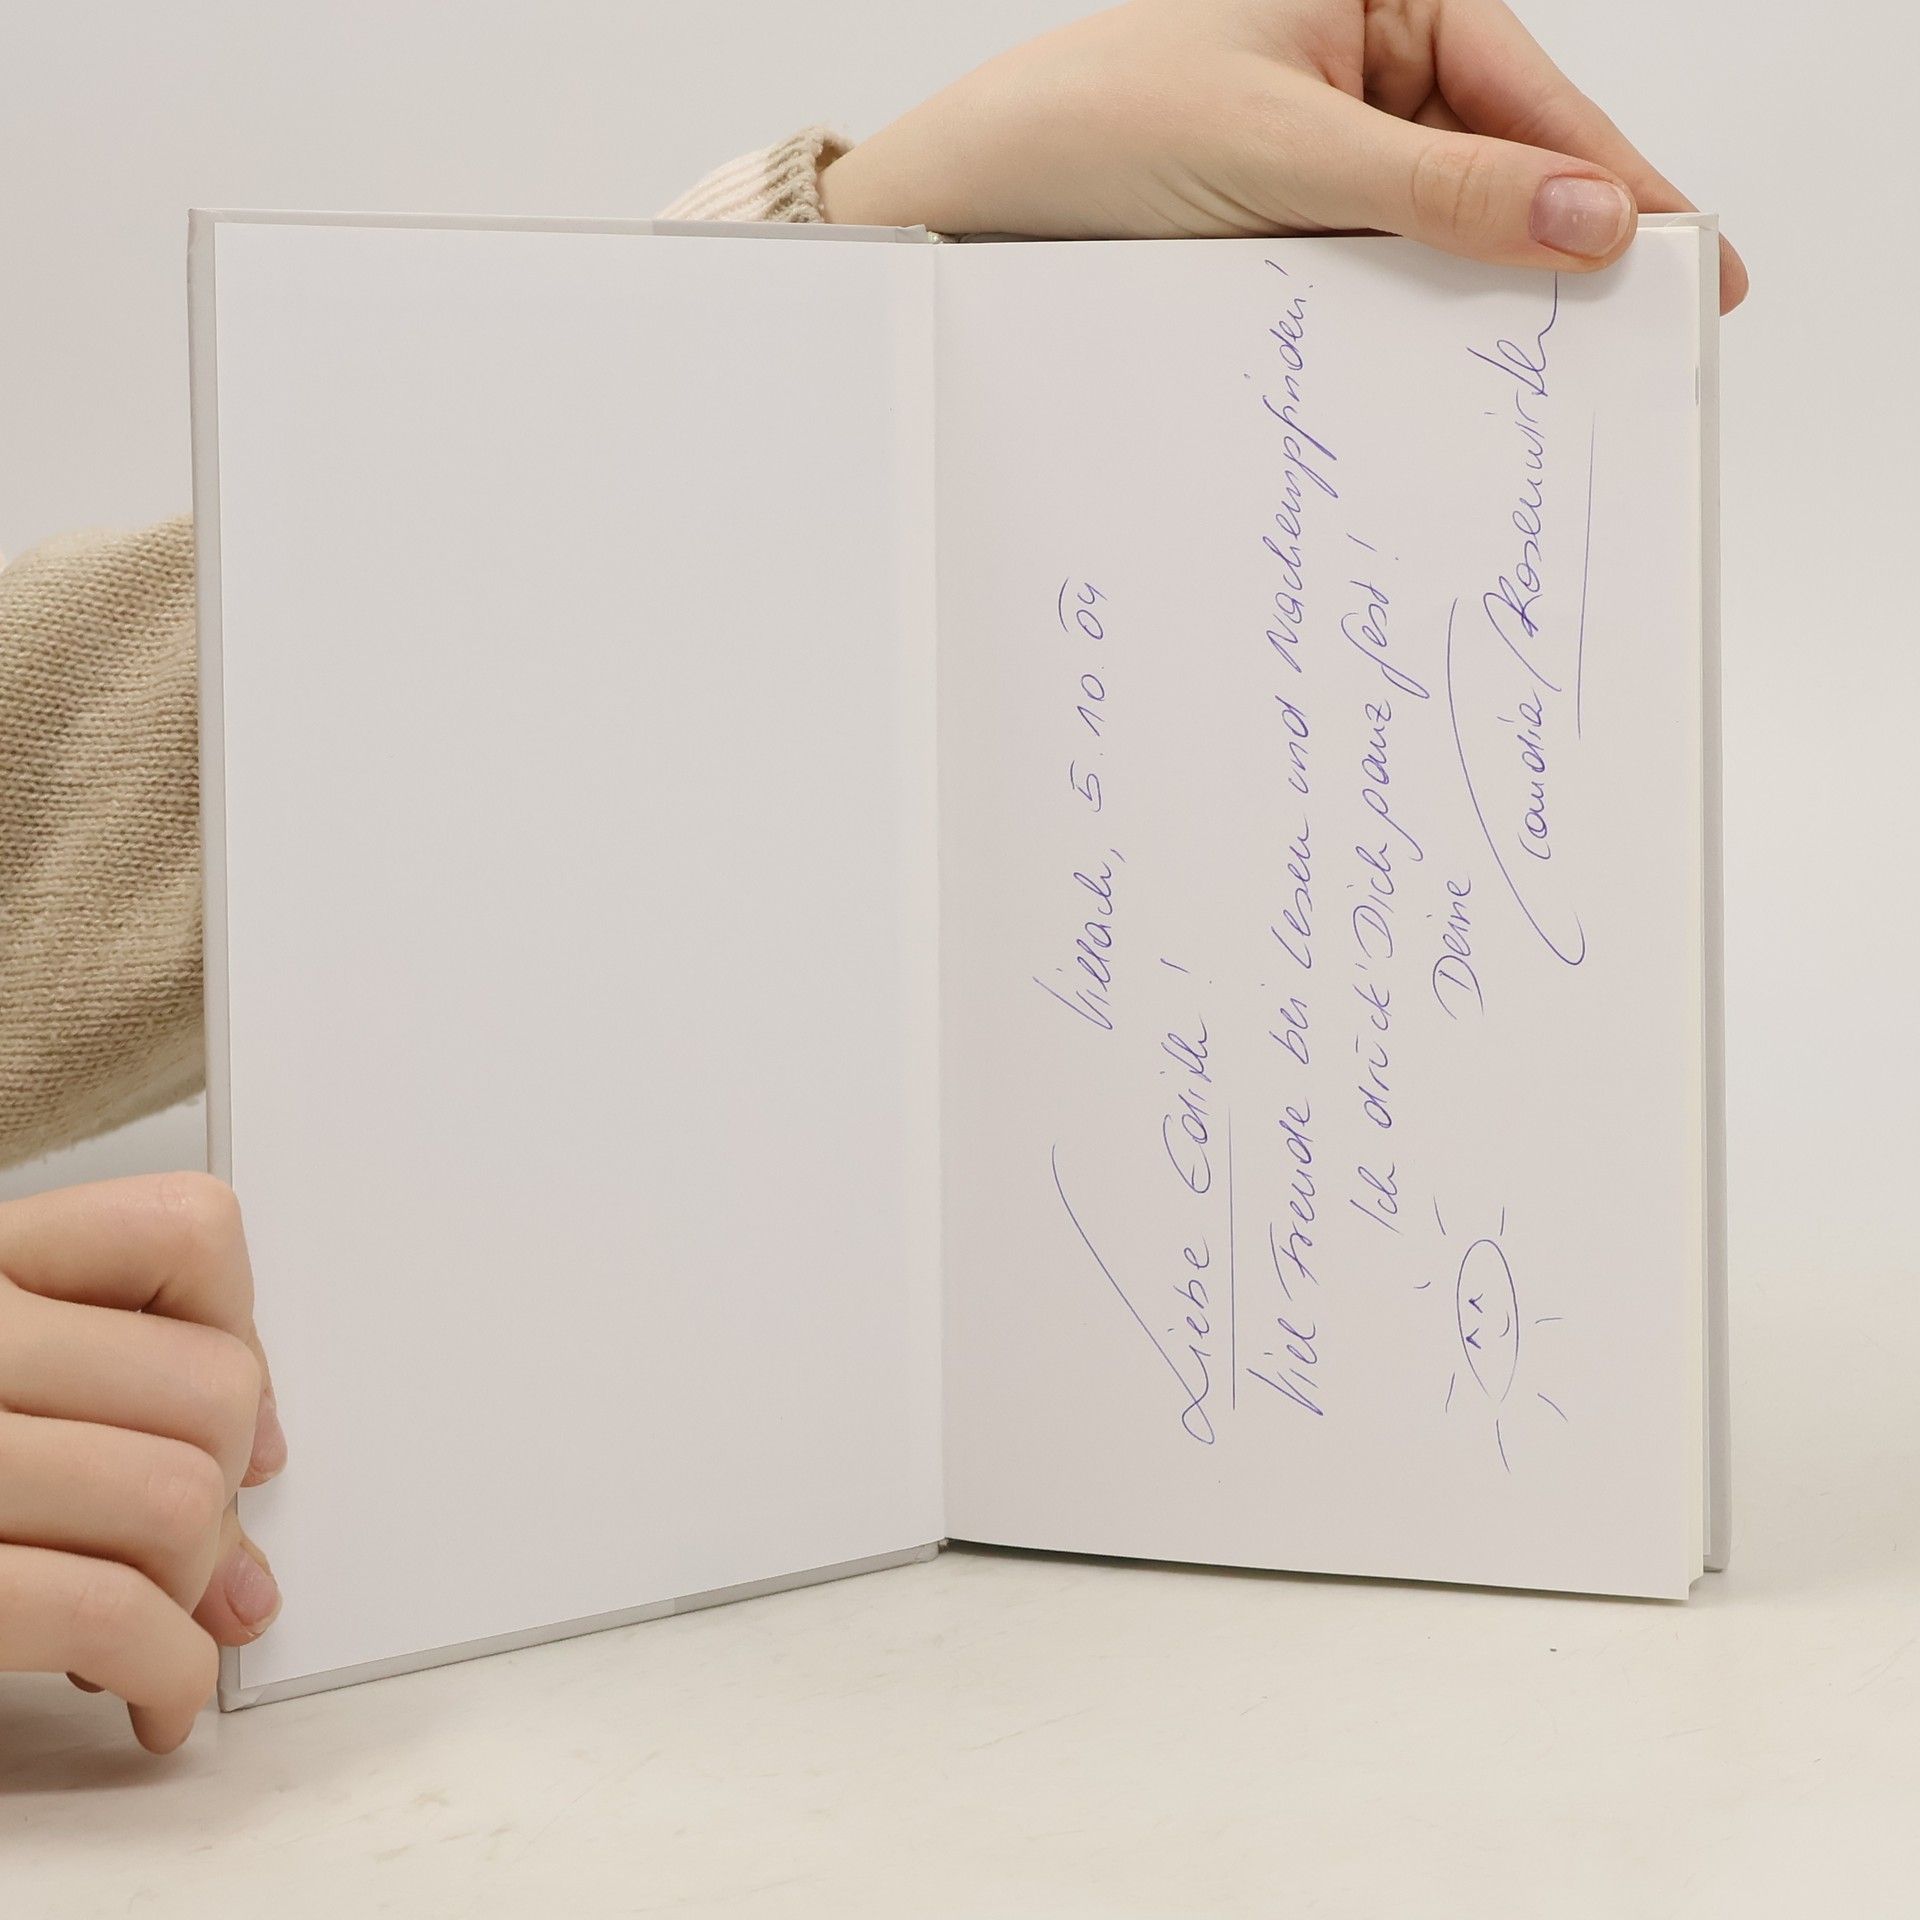 Villach, 5.10.04
Liebe Edith!
Viel Freude bei Lesen und Nachempfinden!
Ich drück' Dich ganz fest!
Deine
Claudia Rosenwirth